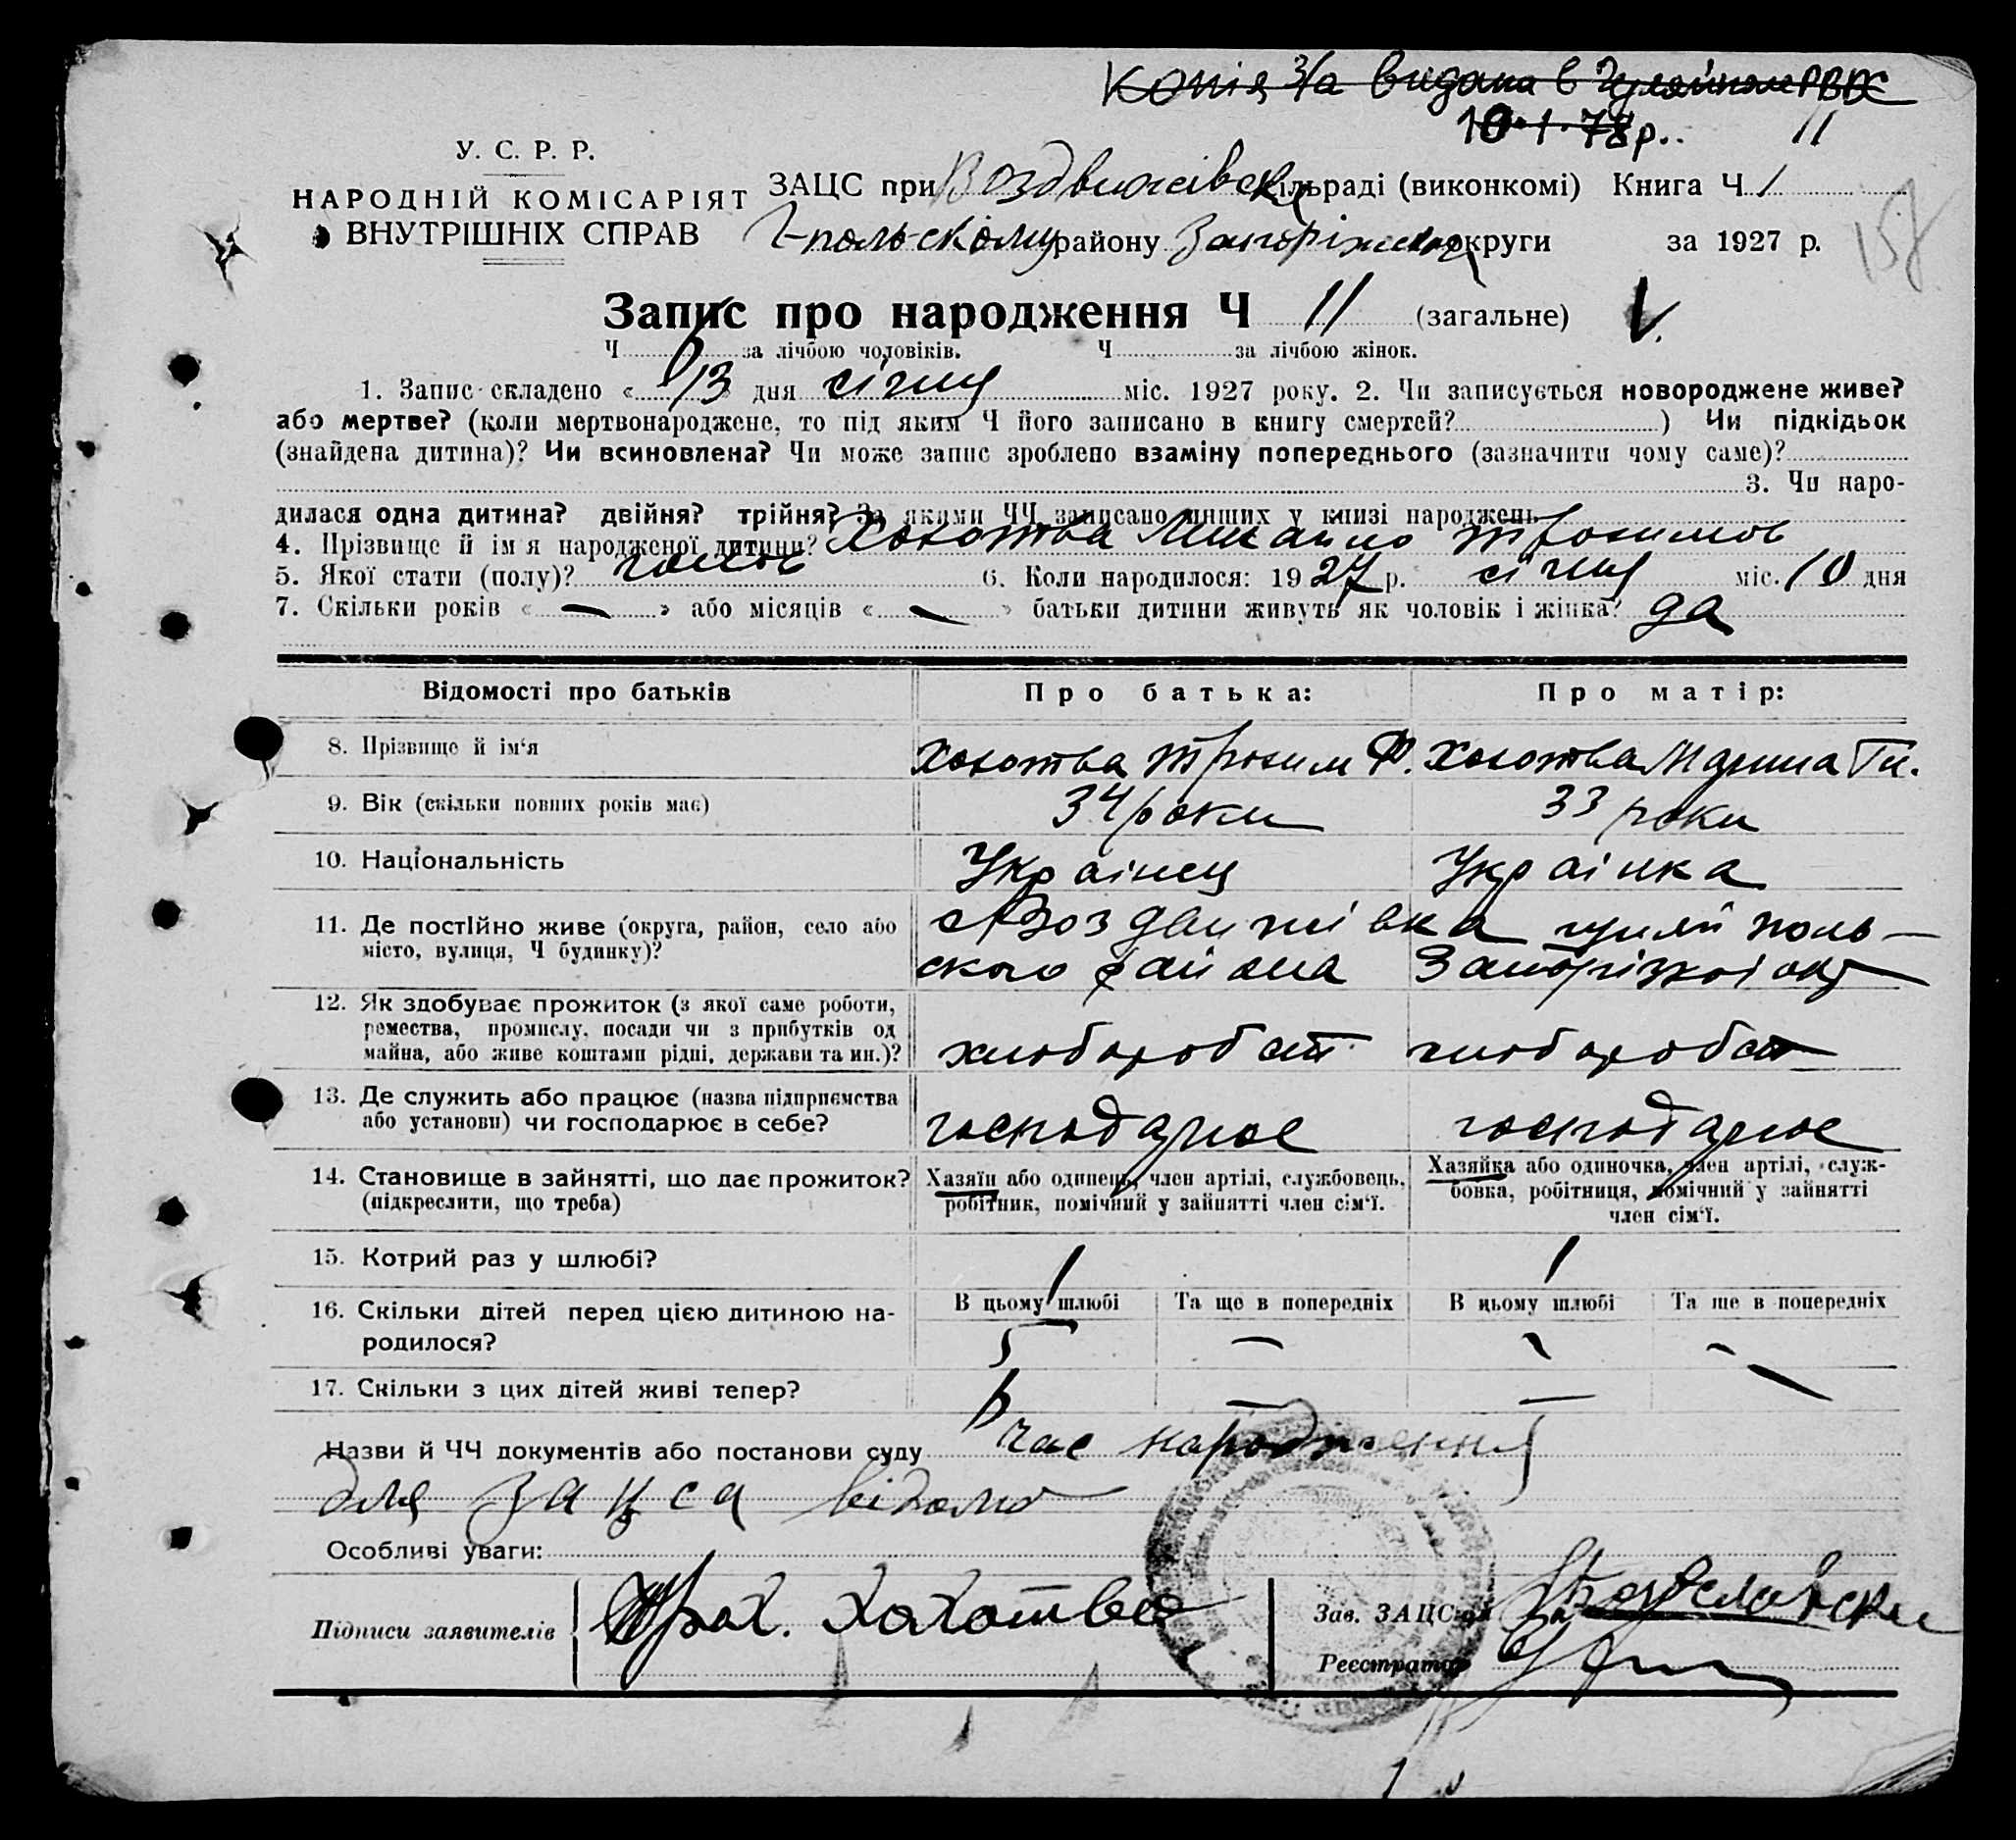 Копія з/а видана в Гуляйпол РВК
10.1.78 р. 11
У. С. Р. Р.
НАРОДНІЙ КОМІСАРІЯТ
ВНУТРІШНІХ СПРАВ
ЗАЦС при Воздвижівск сільраді (виконкомі) Книга Ч 1
Г-польскому району Запоріжськ округи за 1927 р.
157
Запис про народження Ч 11 (загальне) V
Ч 6 за лічбою чоловіків. Ч за лічбою жінок.
1. Запис складено « 13 » дня січня міс. 1927 року. 2. Чи записується новороджене живе?
або мертве? (коли мертвонароджене, то під яким Ч його записано в книгу смертей? ) Чи підкідьок
(знайдена дитина)? Чи всиновлена? Чи може запис зроблено взаміну попереднього (зазначити чому саме)?
3. Чи наро-
дилася одна дитина? двійня? трійня? За якими ЧЧ записано инших у книзі народжень
4. Прізвище й ім'я народженої дитини? Хохотва Михайло Трохимов
5. Якої стати (полу)? чолов 6. Коли народилося: 1927 р. січня міс. 10 дня
7. Скільки років « — » або місяців « — » батьки дитини живуть як чоловік і жінка? да
Відомості про батьків Про батька: Про матір:
8. Прізвище й ім'я Хохотва Трохим Ф. Хохотва Марина Ги.
9. Вік (скільки повних років має) 34 роки 33 роки
10. Національність Українец Українка
11. Де постійно живе (округа, район, село або місто, вулиця, Ч будинку)? с. Воздвижівка гуляй поль-
ского района Запорізкоі окр
12. Як здобуває прожиток (з якої саме роботи,
ремества, промислу, посади чи з прибутків од
майна, або живе коштами рідні, держави та ин.)? хліборобст хліборобст
13. Де служить або працює (назва підприємства
або установи) чи господарює в себе? господарює господарює
14. Становище в зайнятті, що дає прожиток?
(підкреслити, що треба)
Хазяїн або одинець, член артілі, службовець,
робітник, помічний у зайнятті член сім'ї.
Хазяйка або одиночка, член артілі, служ-
бовка, робітниця, помічний у зайнятті
член сім'ї.
15. Котрий раз у шлюбі? 1 1
16. Скільки дітей перед цією дитиною на-
родилося?
В цьому шлюбі Та ще в попередніх В цьому шлюбі Та ще в попередніх
5 — — —
17. Скільки з цих дітей живі тепер? — — —
Назви й ЧЧ документів або постанови суду час народження
для зацса відомо
Особливі уваги:
Підписи заявителів Трох. Хохотва
Зав. ЗАЦС'ом
Реєстратор